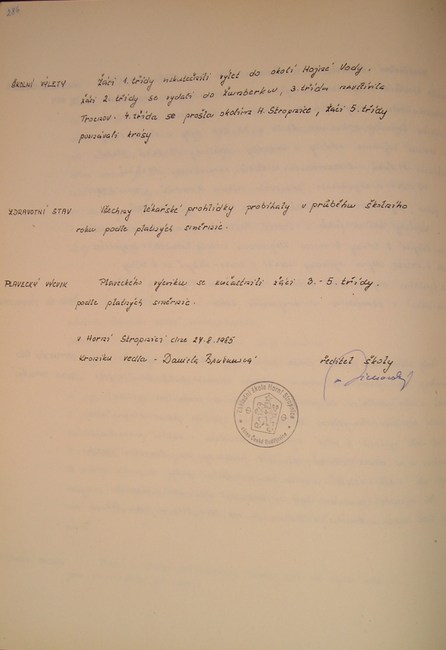 ŠKOLNÍ VÝLETY Žáci 1. třídy uskutečnili výlet do okolí Hojné Vody.
Žáci 2. třídy se vydali do Žumberku, 3. třída navštívila
Trocnov. 4. třída se prošla okolím H. Stropnice, žáci 5. třídy
poznávali krásy
ZDRAVOTNÍ STAV Všechny lékařské prohlídky probíhaly v průběhu školního
roku podle platných směrnic.
PLAVECKÝ VÝCVIK Plaveckého výcviku se zúčastnili žáci 3.-5. třídy.
podle platných směrnic.
v Horní Stropnici dne 29.8.1985
Kroniku vedla - Daniela
ředitel školy
Základní škola Horní Stropnice
okres České Budějovice